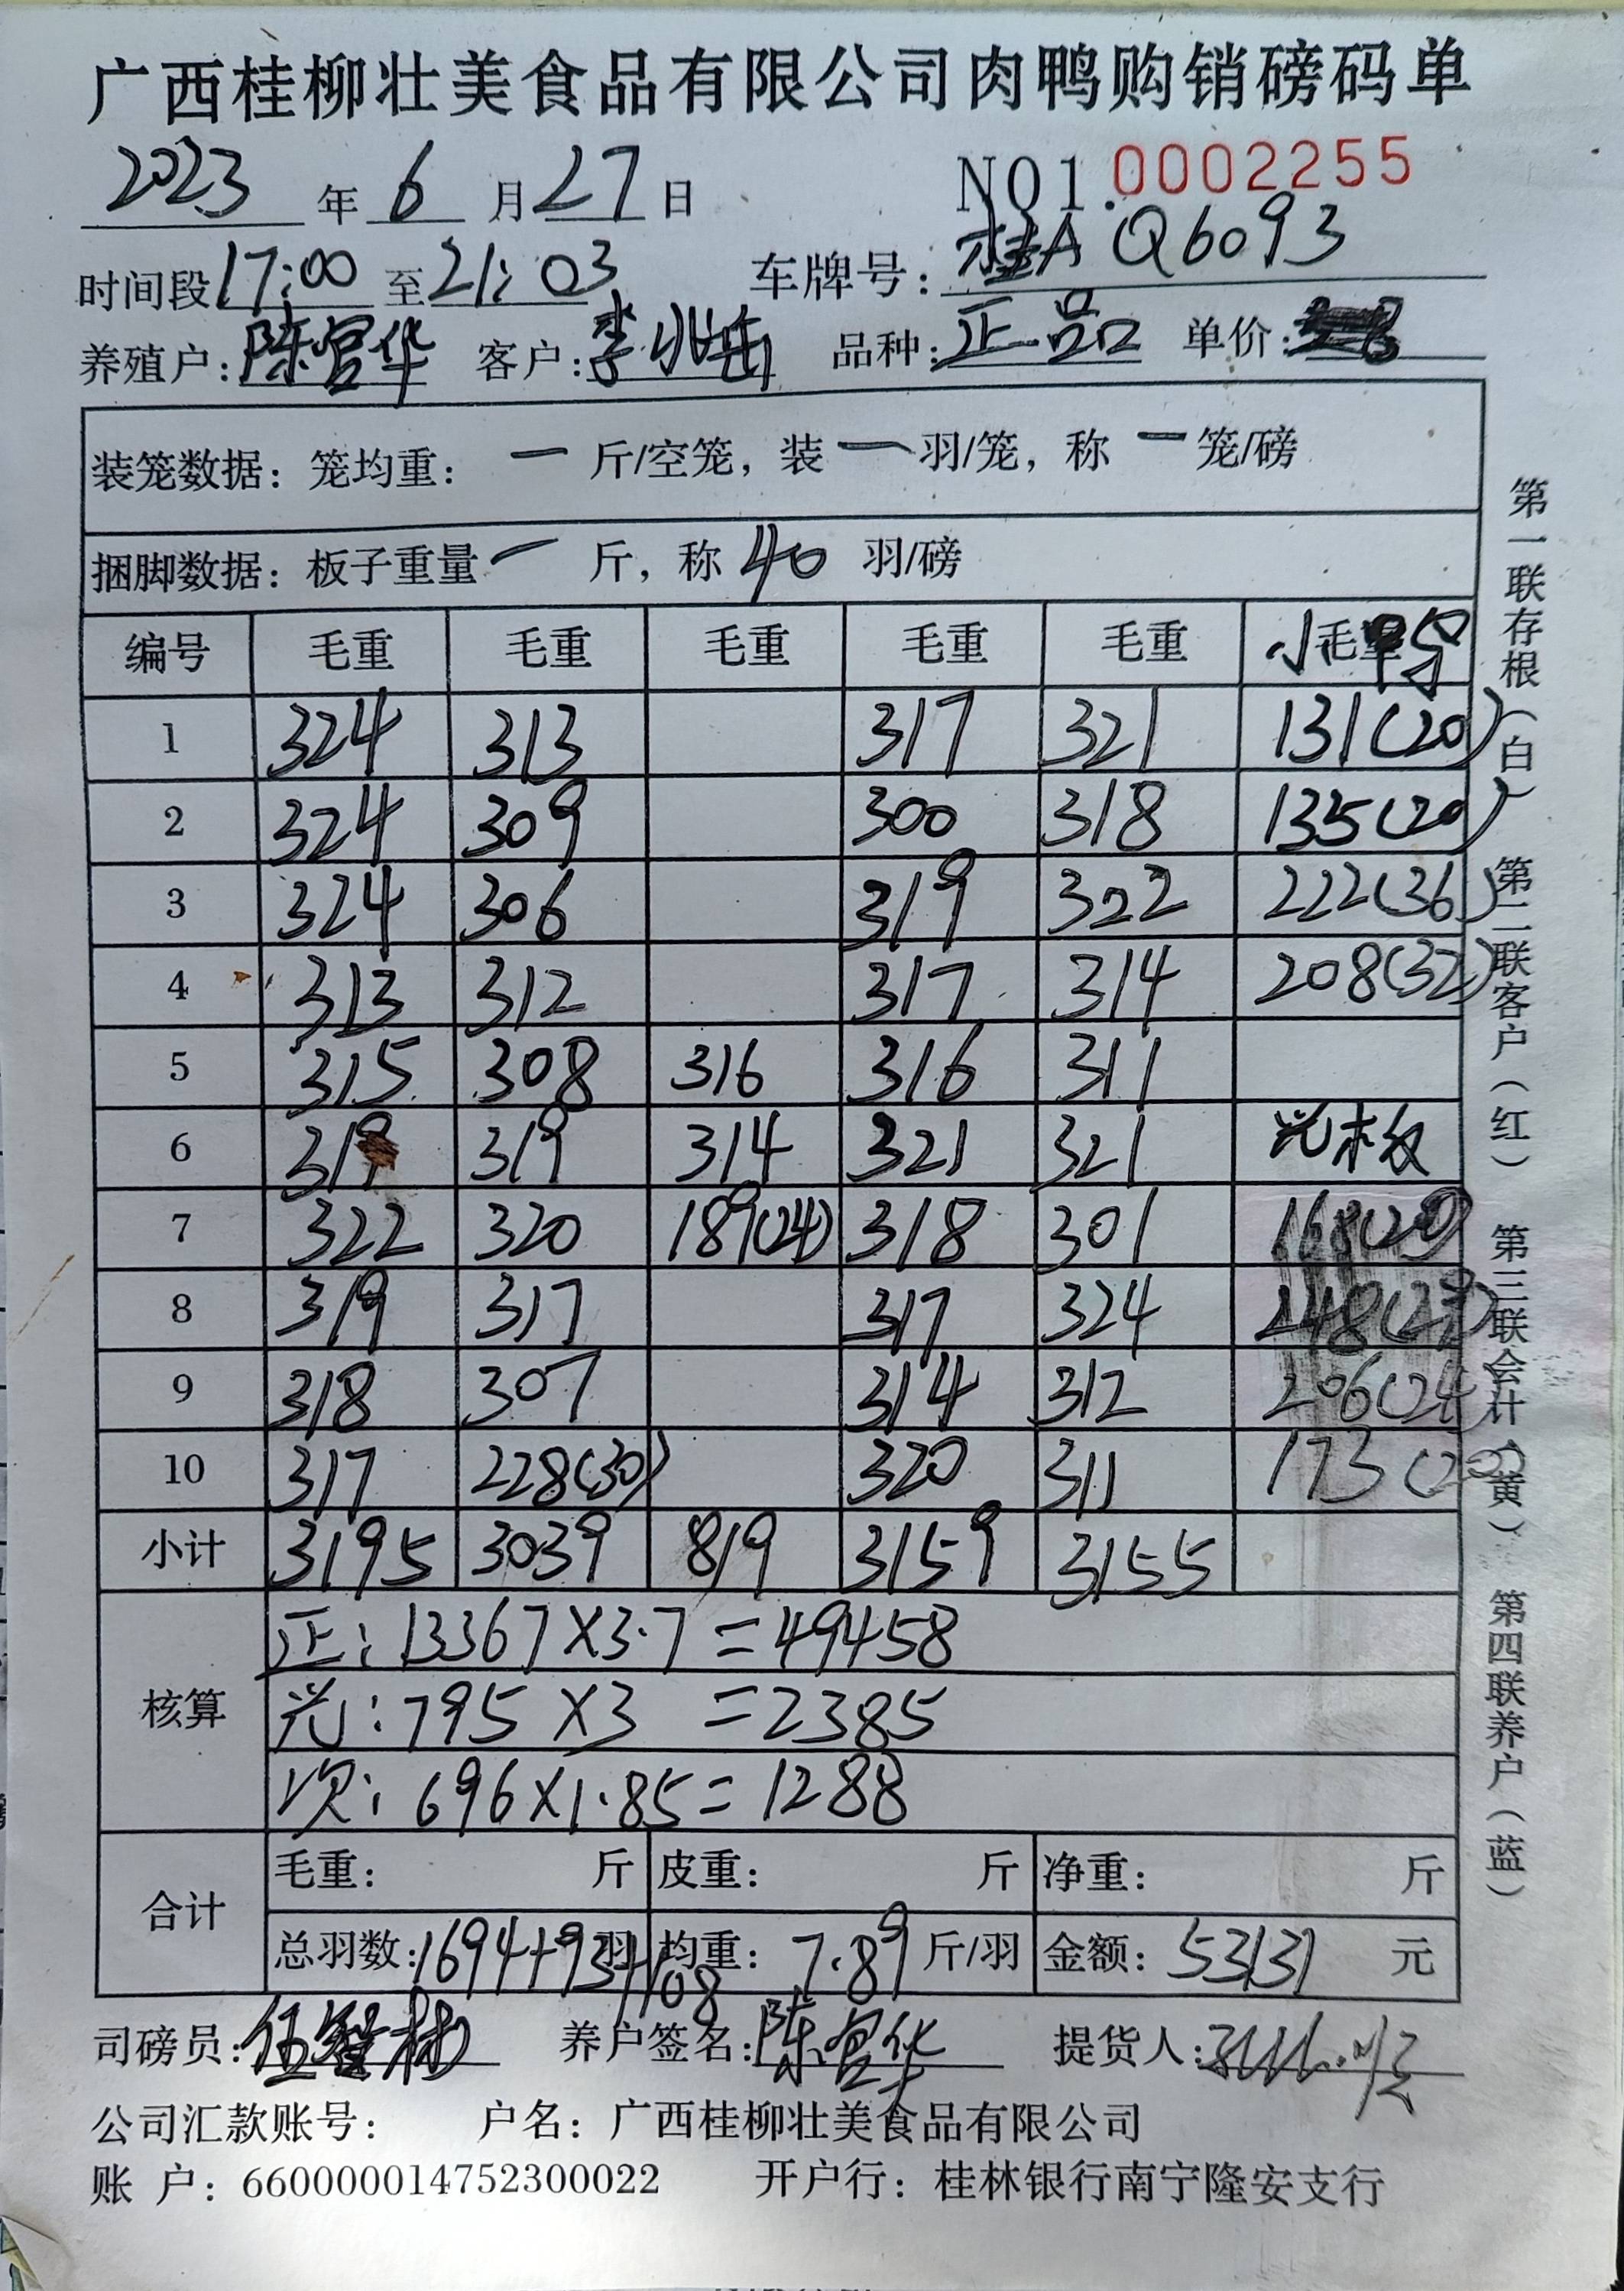 广西桂柳壮美食品有限公司肉鸭购销磅码单
2023 年 6 月 27 日 NO1.0002255
时间段 17:00 至 21:03 车牌号: 桂A Q6093
养殖户: 陈宫华 客户: 李兆岳 品种: 正品 单价:
装笼数据: 笼均重: 一 斤/空笼, 装 一 羽/笼, 称 一 笼/磅
捆脚数据: 板子重量 一 斤, 称 40 羽/磅
编号 毛重 毛重 毛重 毛重 毛重 小毛重
1 324 313 317 321 131(20)
2 324 309 300 318 135(20)
3 324 306 319 322 222(36)
4 313 312 317 314 208(32)
5 315 308 316 316 311
6 319 319 314 321 321 光板
7 322 320 189(24) 318 301 168(20)
8 319 317 317 324 248(29)
9 318 307 314 312 206(24)
10 317 228(30) 320 311 173(20)
小计 3195 3039 819 3159 3155
核算
正: 13367×3.7=49458
光: 795×3 =2385
次: 696×1.85=1288
合计
毛重: 斤 皮重: 斤 净重: 斤
总羽数: 1694+93+108 羽 均重: 7.89 斤/羽 金额: 53131 元
司磅员: 伍智彬 养户签名: 陈宫华 提货人:
公司汇款账号: 户名: 广西桂柳壮美食品有限公司
账 户: 660000014752300022 开户行: 桂林银行南宁隆安支行
第一联存根(白) 第二联客户(红) 第三联会计(黄) 第四联养户(蓝)